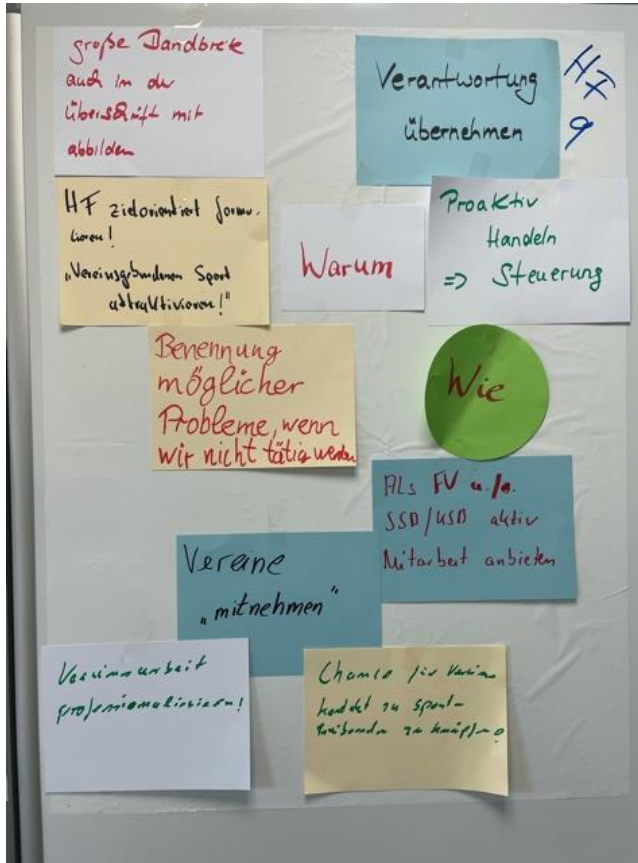 große Bandbreite
auch in der
Überschrift mit
abbilden
Verantwortung
übernehmen
HF
9
HF zielorientiert formu-
lieren!
„Vereinsgebundenen Sport
attraktivieren!"
Warum
Proaktiv
Handeln
=> Steuerung
Benennung
möglicher
Probleme, wenn
wir nicht tätig werden
Wie
Als FV u./o.
SSB/KSB aktiv
Mitarbeit anbieten
Vereine
„mitnehmen"
Vereinsarbeit
professionalisieren!
Chance für Vereine
Kontakt zu Sport-
treibenden zu knüpfen!